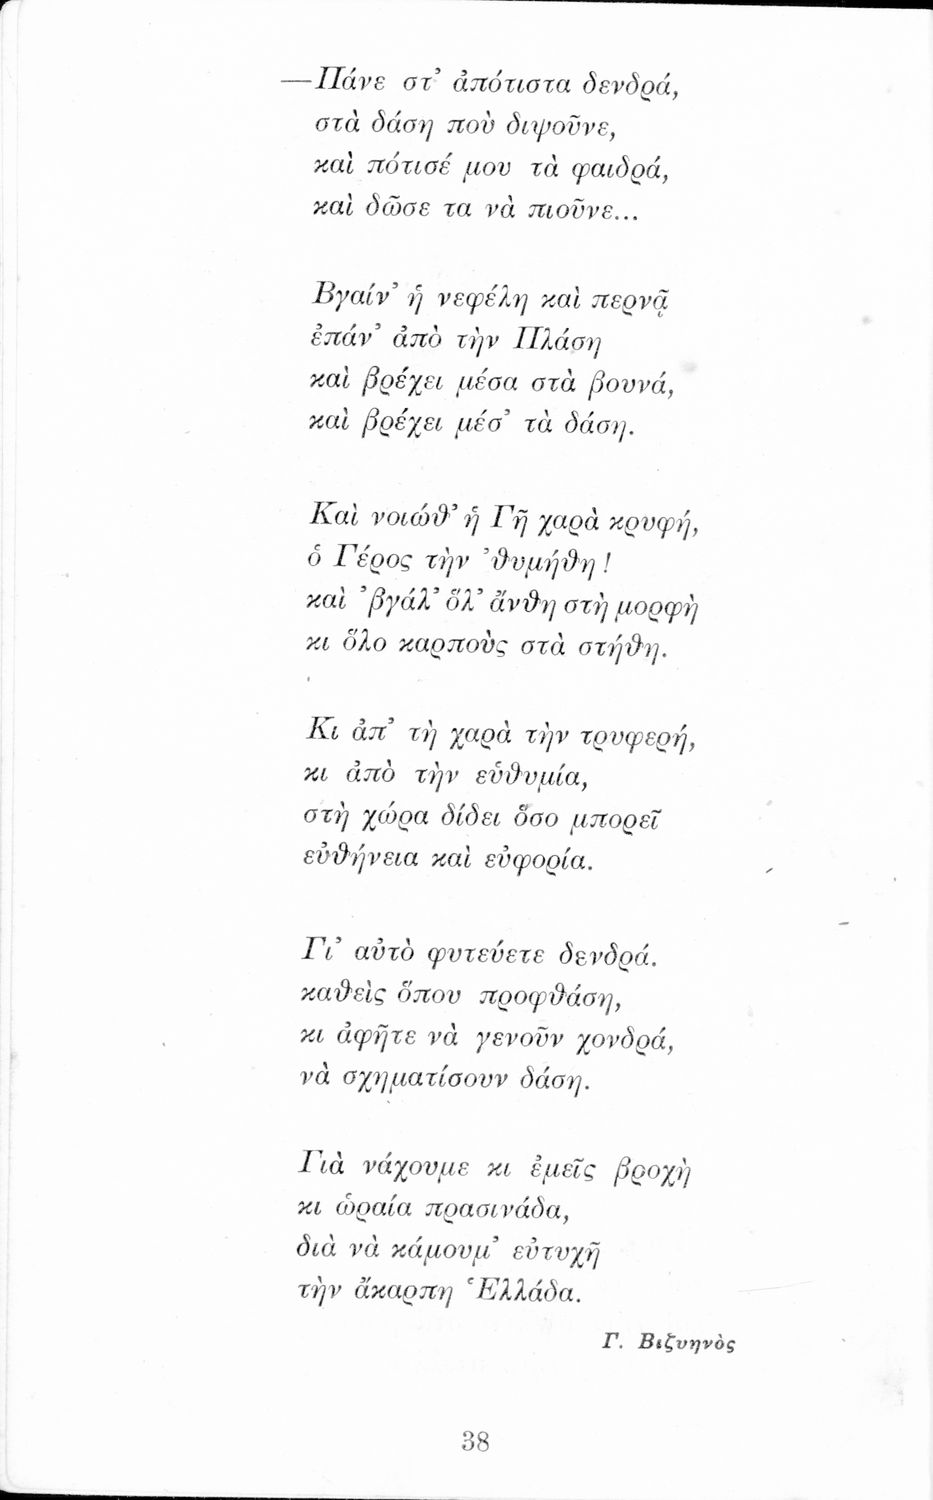 —Πάνε στ’ ἀπότιστα δενδρά,
στὰ δάση ποὺ διψοῦνε,
καὶ πότισέ μου τὰ φαιδρά,
καὶ δῶσε τα νὰ πιοῦνε...
Βγαίν’ ἡ νεφέλη καὶ περνᾷ
ἐπάν’ ἀπὸ τὴν Πλάση
καὶ βρέχει μέσα στὰ βουνά,
καὶ βρέχει μέσ’ τὰ δάση.
Καὶ νοιώθ’ ἡ Γῆ χαρὰ κρυφή,
ὁ Γέρος τὴν ’θυμήθη!
καὶ ’βγάλ’ ὅλ’ ἄνθη στὴ μορφὴ
κι ὅλο καρποὺς στὰ στήθη.
Κι ἀπ’ τὴ χαρὰ τὴν τρυφερή,
κι ἀπὸ τὴν εὐθυμία,
στὴ χώρα δίδει ὅσο μπορεῖ
εὐθήνεια καὶ εὐφορία.
Γι’ αὐτὸ φυτεύετε δενδρά.
καθεὶς ὅπου προφθάση,
κι ἀφῆτε νὰ γενοῦν χονδρά,
νὰ σχηματίσουν δάση.
Γιὰ νάχουμε κι ἐμεῖς βροχὴ
κι ὡραία πρασινάδα,
διὰ νὰ κάμουμ’ εὐτυχῆ
τὴν ἄκαρπη Ἑλλάδα.
Γ. Βιζυηνὸς
38